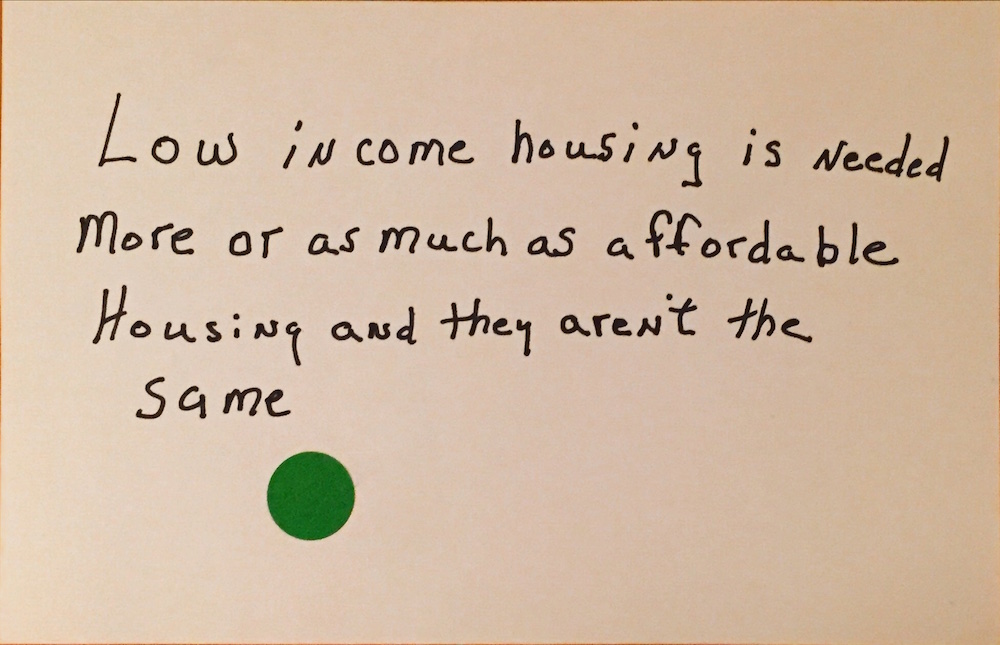 Low income housing is Needed
More or as much as affordable
Housing and they aren't the
same